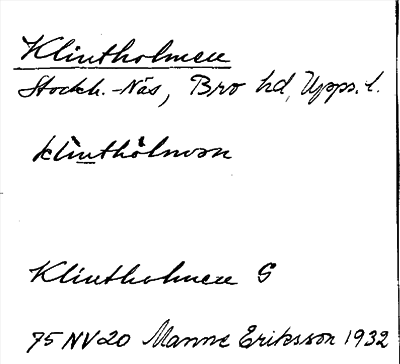 Klintholmen
Stockh.-Näs, Bro hd, Upps. l.
klìnthòlmɔn
Klintholmen S
75 NV20 Manne Eriksson 1932